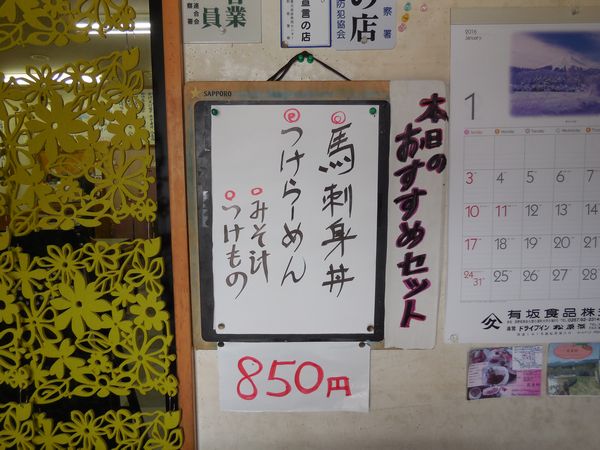 営業
員
宣言の店
防犯協会
の店
察署
SAPPORO
本日の
おすすめセット
馬刺身丼
つけらーめん
みそ汁
つけもの
850円
2016
January
1
3 4 5 6 7
10 11 12 13 14
17 18 19 20 21
24/31 25 26 27 28
有坂食品株
直営 ドライブイン 松原